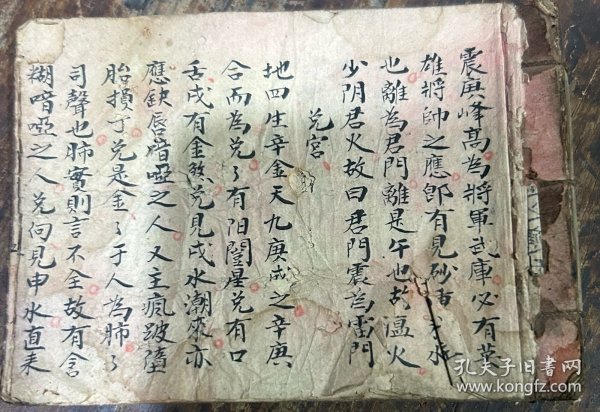 震庚峰高為將軍武庫必有英
雄將帥之應即有見砂
也離為君門離是午也故温火
少阴君火故曰君門震為雷門
兑宮
地四生辛金天九庚成之辛庚
合而為兑了有阳闇星兑有口
舌戌有金煞兑見戌水潮來亦
應缺唇喑啞之人又主瘋跛墮
胎損丁兑是金了于人為肺了
司聲也肺實則言不全故有含
糊喑啞之人兑向見申水直来
孔夫子旧书网
www.kongfz.com